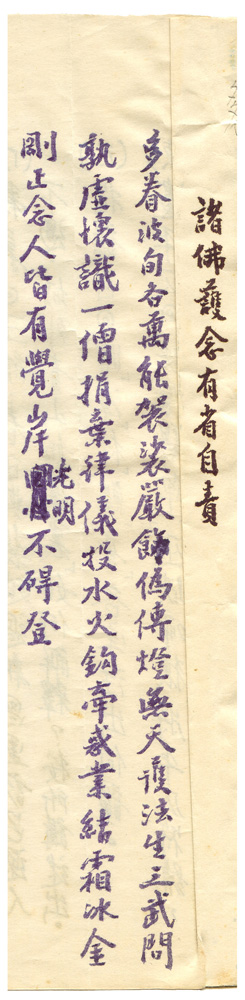 諸佛護念有省自責
多眷波旬各萬能袈裟嚴飾偽傳燈無天護法生三武問
孰虛懷識一僧捐棄律儀投水火鈎牽惑業結霜冰金
剛正念人皆有覺岸光明不碍登